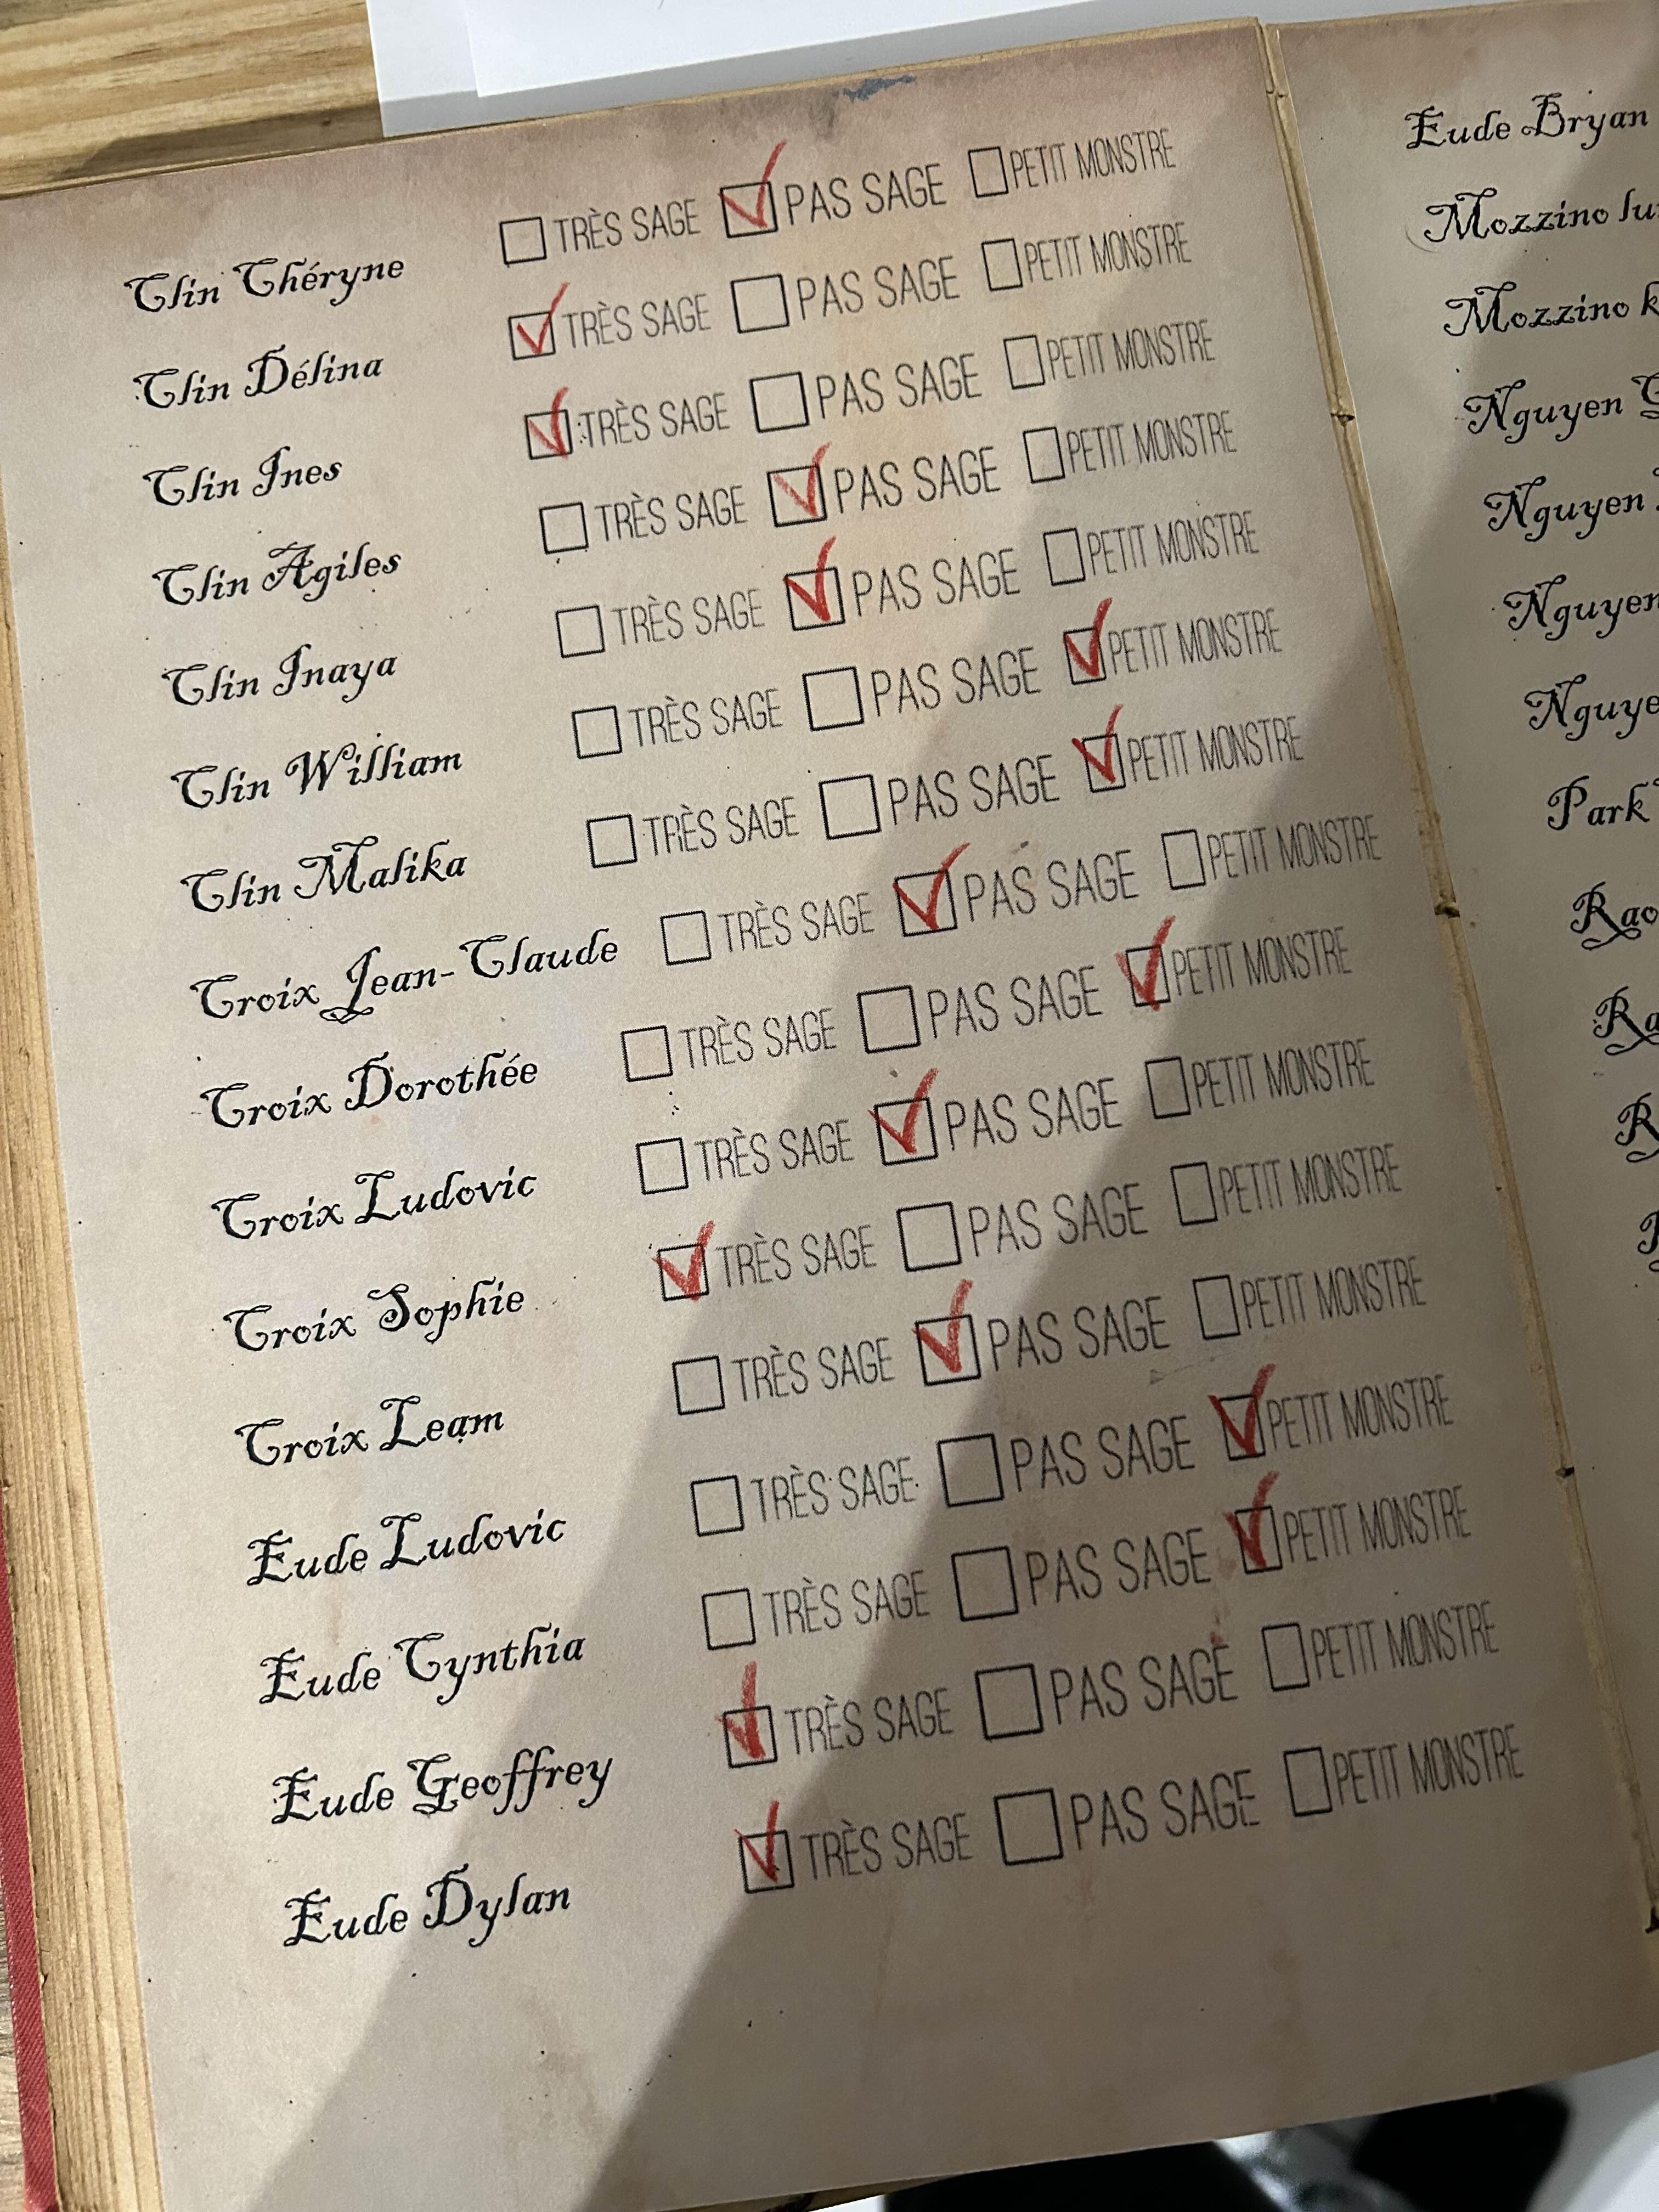 Clin Chéryne ☐ TRÈS SAGE ☑ PAS SAGE ☐ PETIT MONSTRE
Clin Délina ☑ TRÈS SAGE ☐ PAS SAGE ☐ PETIT MONSTRE
Clin Ines ☑ TRÈS SAGE ☐ PAS SAGE ☐ PETIT MONSTRE
Clin Agiles ☐ TRÈS SAGE ☑ PAS SAGE ☐ PETIT MONSTRE
Clin Inaya ☐ TRÈS SAGE ☑ PAS SAGE ☐ PETIT MONSTRE
Clin William ☐ TRÈS SAGE ☐ PAS SAGE ☑ PETIT MONSTRE
Clin Malika ☐ TRÈS SAGE ☐ PAS SAGE ☑ PETIT MONSTRE
Croix Jean-Claude ☐ TRÈS SAGE ☑ PAS SAGE ☐ PETIT MONSTRE
Croix Dorothée ☐ TRÈS SAGE ☐ PAS SAGE ☑ PETIT MONSTRE
Croix Ludovic ☐ TRÈS SAGE ☑ PAS SAGE ☐ PETIT MONSTRE
Croix Sophie ☑ TRÈS SAGE ☐ PAS SAGE ☐ PETIT MONSTRE
Croix Leam ☐ TRÈS SAGE ☑ PAS SAGE ☐ PETIT MONSTRE
Eude Ludovic ☐ TRÈS SAGE ☐ PAS SAGE ☑ PETIT MONSTRE
Eude Cynthia ☐ TRÈS SAGE ☐ PAS SAGE ☑ PETIT MONSTRE
Eude Geoffrey ☑ TRÈS SAGE ☐ PAS SAGE ☐ PETIT MONSTRE
Eude Dylan ☑ TRÈS SAGE ☐ PAS SAGE ☐ PETIT MONSTRE
Eude Bryan
Mozzino
Mozzino
Nguyen
Nguyen
Nguyen
Park